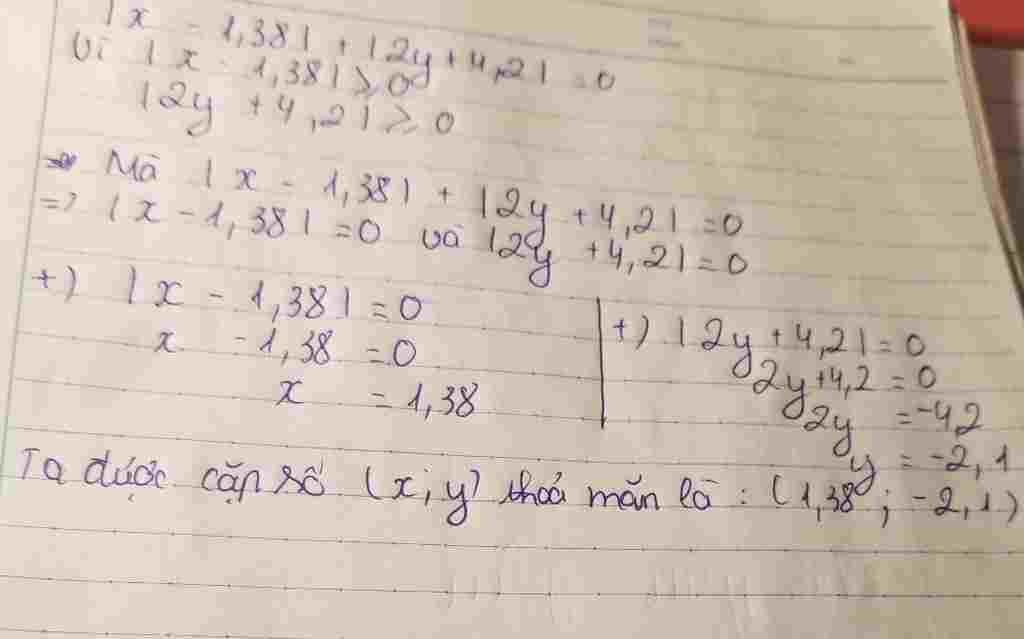 |x - 1,38| + |2y + 4,2| = 0
Vì |x - 1,38| ≥ 0
|2y + 4,2| ≥ 0
Mà |x - 1,38| + |2y + 4,2| = 0
=> |x - 1,38| = 0 và |2y + 4,2| = 0
+) |x - 1,38| = 0
x - 1,38 = 0
x = 1,38
+) |2y + 4,2| = 0
2y + 4,2 = 0
2y = -4,2
y = -2,1
Ta được cặp số (x, y) thoả mãn là : (1,38 ; -2,1)